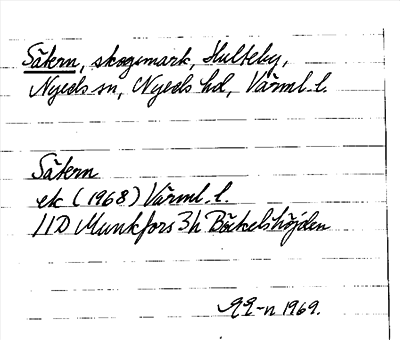 Säkern, skogsmark, Hulteby,
Nyeds sn, Nyeds hd, Värml. l.
Säkern
ek (1968) Värml. l.
11D Munkfors 3h Bäckelshöjden
1969.